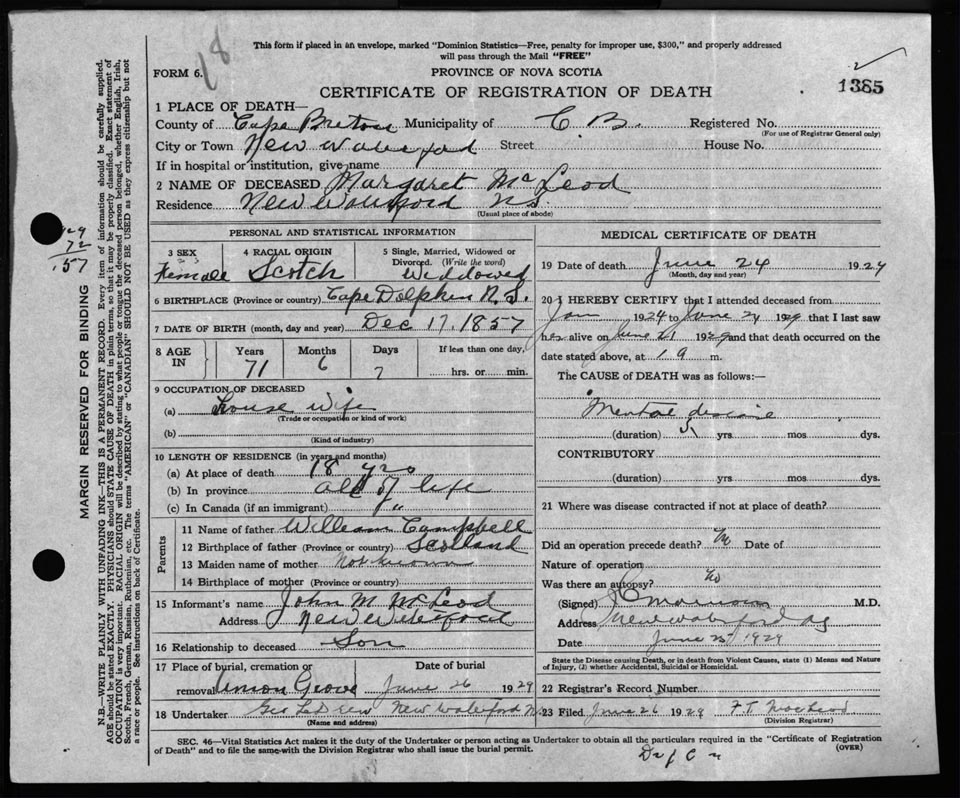 This form if placed in an envelope, marked "Dominion Statistics—Free, penalty for improper use, $300," and properly addressed
will pass through the Mail "FREE"
FORM 6.
PROVINCE OF NOVA SCOTIA
CERTIFICATE OF REGISTRATION OF DEATH
1385
1 PLACE OF DEATH—
County of Cape Breton Municipality of C. B. Registered No.
(For use of Registrar General only)
City or Town New Waterford Street House No.
If in hospital or institution, give name
2 NAME OF DECEASED Margaret McLeod
Residence New Waterford N.S.
(Usual place of abode)
PERSONAL AND STATISTICAL INFORMATION
3 SEX 4 RACIAL ORIGIN 5 Single, Married, Widowed or Divorced. (Write the word)
Female Scotch Widowed
6 BIRTHPLACE (Province or country) Cape Dolphin N.S.
7 DATE OF BIRTH (month, day and year) Dec 17, 1857
8 AGE IN Years Months Days If less than one day,
71 6 7 hrs. or min.
9 OCCUPATION OF DECEASED
(a) House wife
(Trade or occupation or kind of work)
(b)
(Kind of industry)
10 LENGTH OF RESIDENCE (in years and months)
(a) At place of death 18 yrs
(b) In province all of life
(c) In Canada (if an immigrant) "
Parents
11 Name of father William Campbell
12 Birthplace of father (Province or country) Scotland
13 Maiden name of mother Not known
14 Birthplace of mother (Province or country)
15 Informant's name John M McLeod
Address New Waterford
16 Relationship to deceased Son
17 Place of burial, cremation or removal Union Grove Date of burial June 26 1929
18 Undertaker New Waterford N.
(Name and address)
MEDICAL CERTIFICATE OF DEATH
19 Date of death June 24 1929
(Month, day and year)
20 I HEREBY CERTIFY that I attended deceased from
Jan 1924 to June 24 1929 that I last saw
her alive on June 21 1929 and that death occurred on the
date stated above, at 19 m.
The CAUSE of DEATH was as follows:—
(duration) 5 yrs mos dys.
CONTRIBUTORY
(duration) yrs mos dys.
21 Where was disease contracted if not at place of death?
Did an operation precede death? No Date of
Nature of operation
Was there an autopsy? No
(Signed) M.D.
Address New Waterford
Date June 25 1929
State the Disease causing Death, or in death from Violent Causes, state (1) Means and Nature
of Injury, (2) whether Accidental, Suicidal or Homicidal.
22 Registrar's Record Number
23 Filed June 26 1929 F. T. MacLeod
(Division Registrar)
SEC. 46—Vital Statistics Act makes it the duty of the Undertaker or person acting as Undertaker to obtain all the particulars required in the "Certificate of Registration
of Death" and to file the same with the Division Registrar who shall issue the burial permit.
(OVER)
MARGIN RESERVED FOR BINDING
N.B.—WRITE PLAINLY WITH UNFADING INK—THIS IS A PERMANENT RECORD. Every item of information should be carefully supplied.
AGE should be stated EXACTLY. PHYSICIANS should STATE CAUSE OF DEATH in plain terms, so that it may be properly classified. Exact statement of
OCCUPATION is very important. RACIAL ORIGIN will be described by stating to what people or tongue the deceased person belonged, whether English, Irish,
Scotch, French, German, Russian, Ruthenian, etc. The terms "AMERICAN" or "CANADIAN" SHOULD NOT BE USED as they express citizenship but not
a race or people. See instructions on back of Certificate.
29
72
157